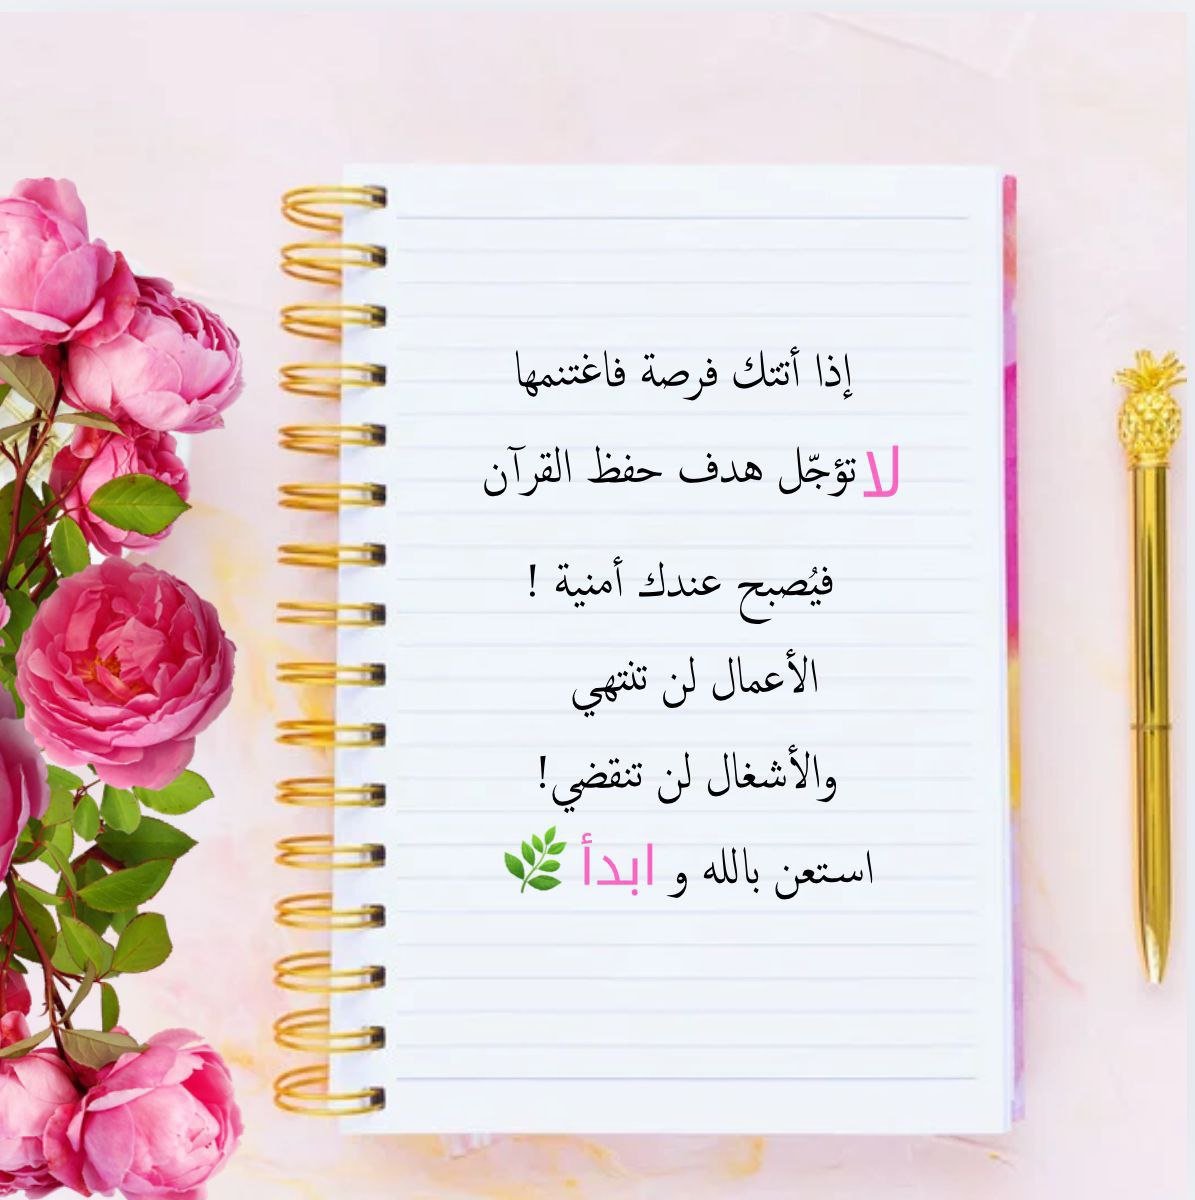 إذا أتتك فرصة فاغتنمها
لا تؤجّل هدف حفظ القرآن
فيُصبح عندك أمنية !
الأعمال لن تنتهي
والأشغال لن تنقضي!
استعن بالله و ابدأ 🌿